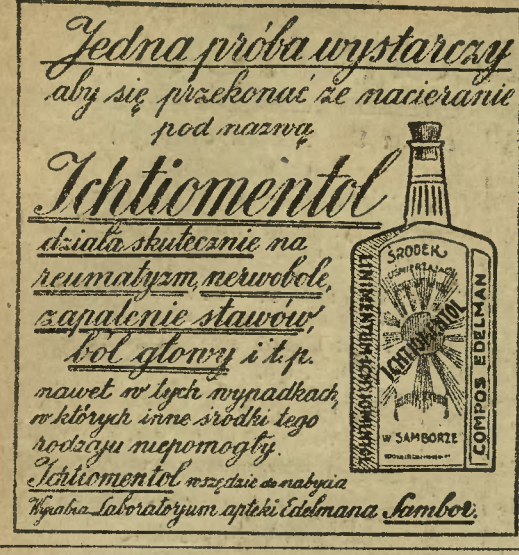 Jedna próba wystarczy
aby się przekonać że nacieranie
pod nazwą
Ichtiomentol
działa skutecznie na
reumatyzm, nerwobole,
zapalenie stawów,
ból głowy i t.p.
nawet w tych wypadkach,
w których inne środki tego
rodzaju niepomogły.
Ichtiomentol wszędzie do nabycia
Wyrabia Laboratoryum apteki Edelmana Sambor.
ŚRODEK
UŚMIERZAJĄCY
ICHTIOMENTOL
W SAMBORZE
COMPOS EDELMAN